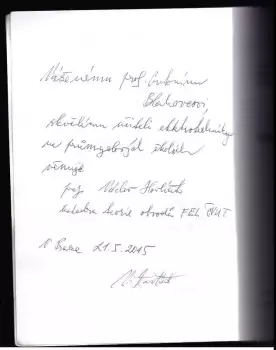 Váženému prof. Antonínu
Blahovcovi,
skvělému učiteli elektrotechniky
na průmyslových školách
věnuje
prof. Václav Havlíček
katedra teorie obvodů FEL ČVUT
V Praze 21.5.2015
V. Havlíček